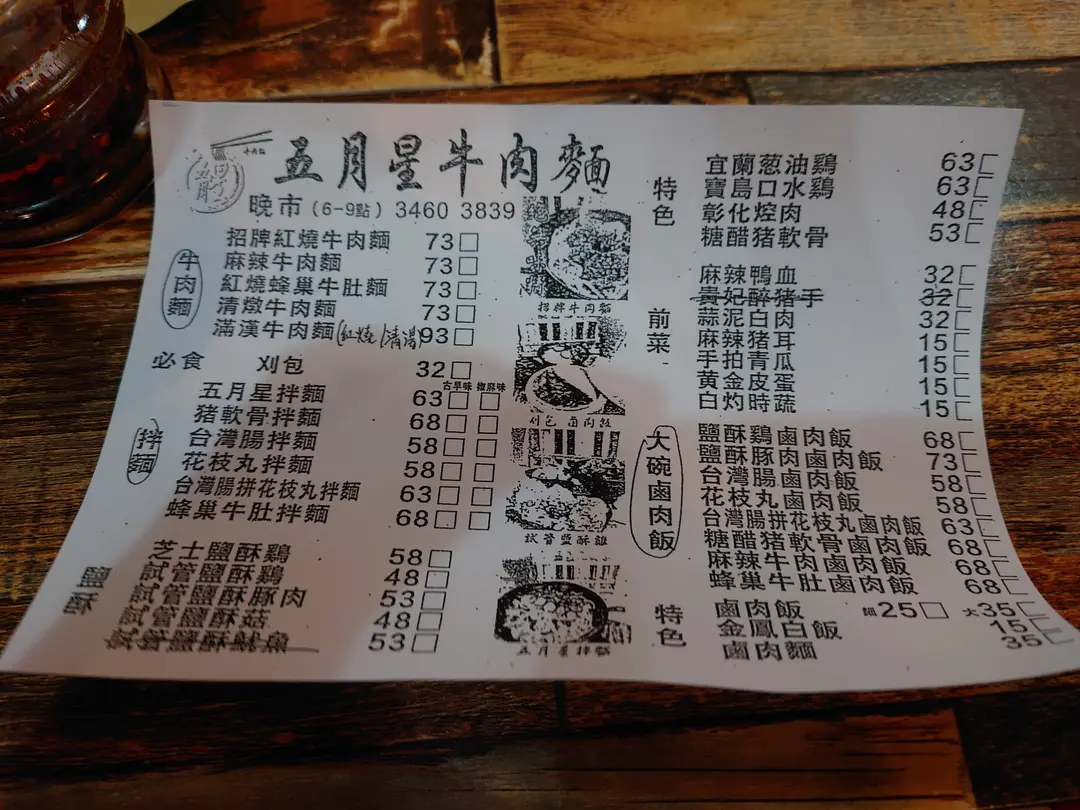 五月星牛肉麵
晚市(6-9點) 3460 3839
牛肉麵
招牌紅燒牛肉麵 73
麻辣牛肉麵 73
紅燒蜂巢牛肚麵 73
清燉牛肉麵 73
滿漢牛肉麵(紅燒/清湯) 93
必食 刈包 32
古早味 椒麻味
拌麵
五月星拌麵 63
豬軟骨拌麵 68
台灣腸拌麵 58
花枝丸拌麵 58
台灣腸拼花枝丸拌麵 63
蜂巢牛肚拌麵 68
芝士鹽酥鷄 58
試管鹽酥鷄 48
試管鹽酥豚肉 53
試管鹽酥菇 48
試管鹽酥魷魚 53
招牌牛肉麵
刈包 鹵肉飯
試管鹽酥雞
五月星拌麵
特色
宜蘭葱油鷄 63
寶島口水鷄 63
彰化焢肉 48
糖醋豬軟骨 53
前菜
麻辣鴨血 32
貴妃醉猪手 32
蒜泥白肉 32
麻辣猪耳 15
手拍青瓜 15
黄金皮蛋 15
白灼時蔬 15
大碗鹵肉飯
鹽酥鷄鹵肉飯 68
鹽酥豚肉鹵肉飯 73
台灣腸鹵肉飯 58
花枝丸鹵肉飯 58
台灣腸拼花枝丸鹵肉飯 63
糖醋猪軟骨鹵肉飯 68
麻辣牛肉鹵肉飯 68
蜂巢牛肚鹵肉飯 68
特色
鹵肉飯 細25 大35
金鳳白飯 15
鹵肉麵 35